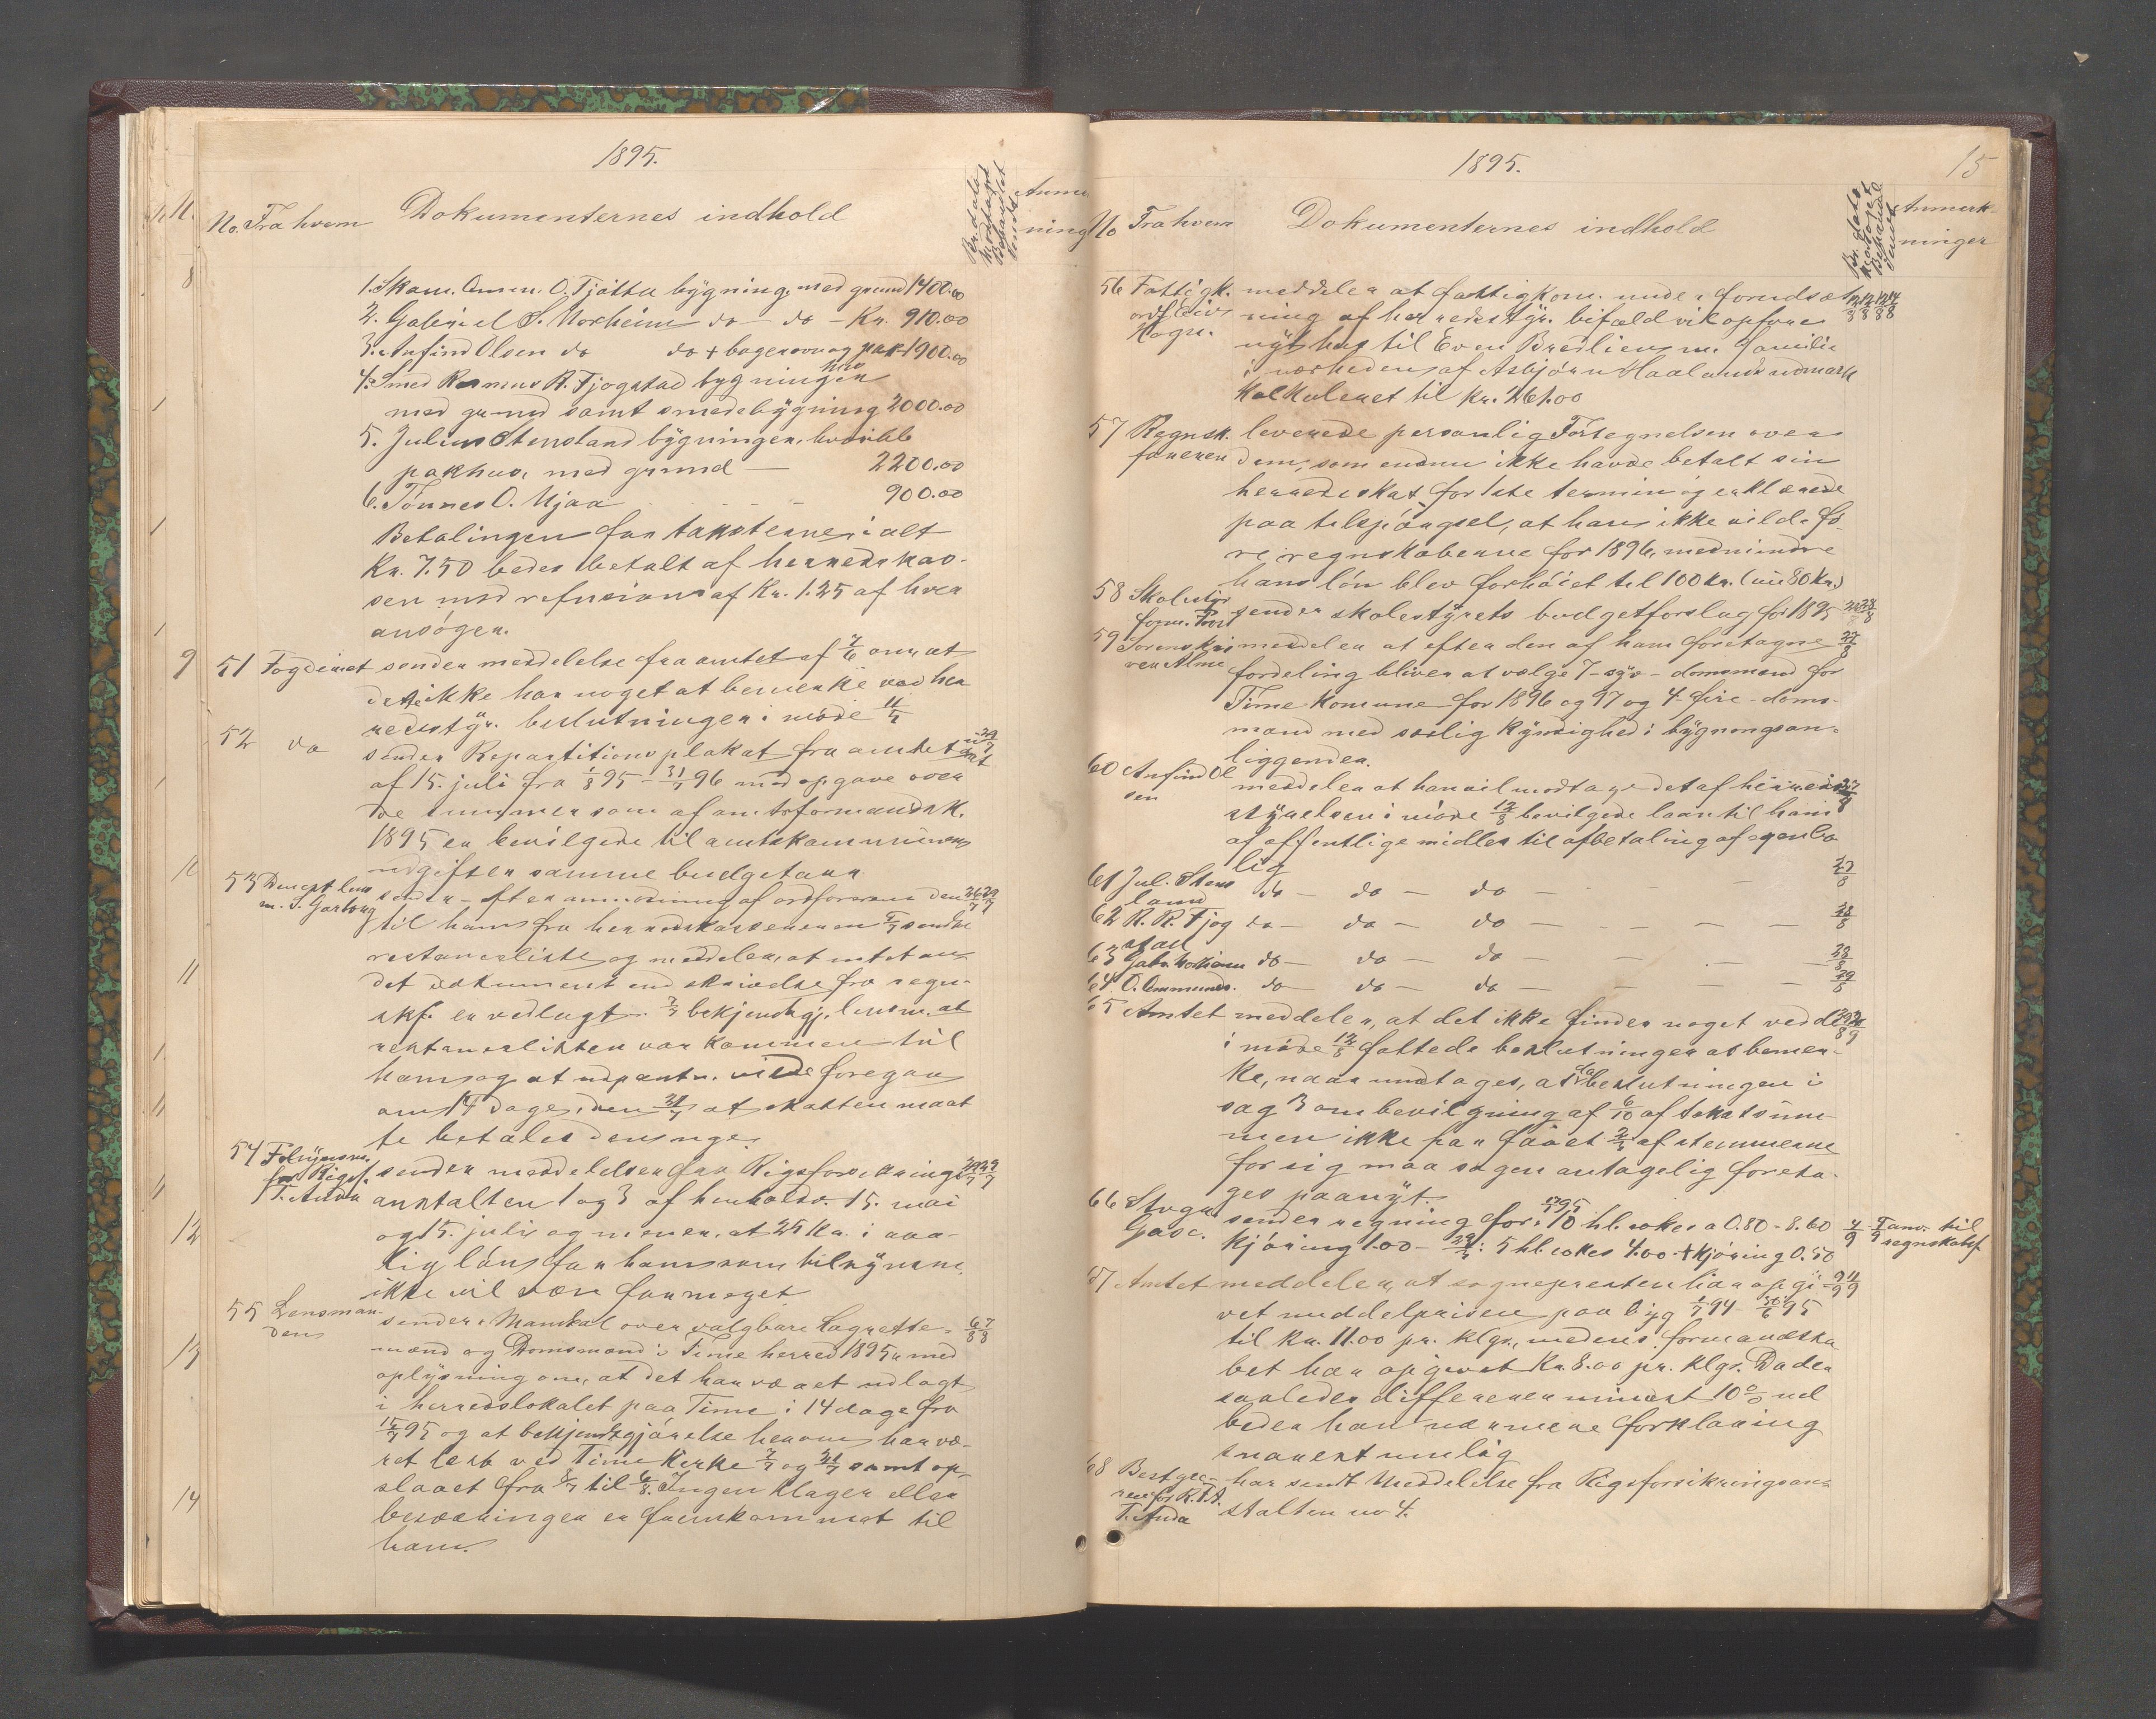 1895.
No. Fra hvem Dokumenternes indhold
Br. dato Modtaget Behandlet Sendt
1. Skom. Ommun. O. Tjøtta bygning med grund 1400.00
2. Gabriel S. Norheim do do - Kr. 910.00
3. Anfind Olsen do do + bagerovn og pakhus 1900.00
4. Smed Rasmus R. Fjogstad bygningen
med grund samt smedebygning 2000.00
5. Julius Stensland bygningen, hvori
pakhus, med grund — 2200.00
6. Tønnes O. Njaa - - - 900.00
Betalingen for taksterne ialt
Kr. 7.50 bedes betalt af herredskas-
sen mod refusion af Kr. 1.25 af hver
ansøger.
51 Fogderiet sender meddelelse fra amtet af 7/6 om at
det ikke har noget at bemerke ved her
redsstyr. beslutninger i møde 11/5
52 do sender Repartitionsplakat fra amtet 29/7
af 15. juli fra 1/8 95 - 31/7 96 med opgave over
de summer som af amtsformandsk.
1895 er bevilgede til amtskommunens
udgifter samme budgetaar
53 Const. lens
m. S. Garborg sender - efter anmodning af ordføreren den 26/7 29/7
til ham fra herredskassereren 5/7 sendte
restanceliste og meddeler, at intet an
det dokument end skrivelse fra regn-
skf. er vedlagt. 7/7 bekjendtgj. lensm. at
restancelisten var kommen til
ham og at udpantn. vilde foregaa
om 14 dage, den 21/7 at skatten maat
te betales den uge.
54 Tilsynsm.
for Rigsf.
T. Anda sender meddelelser fra Rigsforsikrings 29/7 29/7
anstalten 1 og 3 af henholdsv. 15. mai
og 15. juli og mener, at 25 Kr. i aar-
lig løn for ham som tilsynsm.
ikke vil være for meget
55 Lensman-
den sender Mandtal over valgbare Lagrette- 6/8 7/8
mænd og Domsmænd i Time herred 1895 med
oplysning om, at det har været udlagt
i herredslokalet paa Time i 14 dage fra
15/7 95 og at bekjendtgjørelse herom har væ-
ret læst ved Time Kirke 7/7 og 21/7 samt op-
slaaet fra 8/7 til 6/8. Ingen klager eller
besværinger er fremkommet til
ham.
1895. 15
No Fra hvem Dokumenternes indhold
Br. dato Modtaget Behandlet Sendt Anmerk-
ninger
56 Fattigk.
ordf. Eiv.
Hogn. meddeler at fattigkom. under forudsæt 12/8 12/8 12/8 14/8
ning af herredsstyr. bifald vil opføre
nyt hus til Even Bredliens m. familie
i nærheden af Asbjørn Haalands udmark
kalkuleret til Kr. 261.00
57 Regnsk.
føreren leverede personlig Fortegnelsen over
dem, som endnu ikke havde betalt sin
herredsskat for 1ste termin og erklærede
paa tilspørgsel, at han ikke vilde fø-
re regnskaberne for 1896, medmindre
hans løn blev forhøiet til 100 Kr. (nu 80 Kr.)
58 Skolestyr
form. sender skolestyrets budgetforslag for 1895 28/8
59 Sorenskri
ver Alme meddeler at efter den af ham foretagne 27/8
fordeling bliver at vælge 7 - syv - domsmænd for
Time Komune for 1896 og 97 og 4 - fire - doms-
mænd med særlig kyndighed i bygningsan-
liggender.
60 Anfind Ol
sen meddeler at han vil modtage det af herreds 27/8
styrelsen i møde 12/8 bevilgede laan til ham
af offentlige midler til afbetaling af egen bo
lig
61 Jul. Stens
land do — do — do — — — 27/8
62 R. R. Fjog
stad do — do — do — — — — 28/8
63 Gabr. Norheim do — do — do — — — — 28/8
64 O. Ommunds. do — do — do — — — — 29/8
65 Amtet meddeler, at det ikke finder noget ved de 29/8 2/9
i møde 12/8 fattede beslutninger at bemer-
ke, naar undtages, at da beslutningen i
sag 3 om bevilgning af 6/10 af takstsum
men ikke har faaet 2/3 af stemmerne
for sig maa sagen antagelig foreta-
ges paanyt.
66 Stvgr.
Gasv. sender regning for 17/1 95 10 hl. cokes a 0.80 - 8.60 4/9 5/9 anv. til
kjøring 1.00 - : 5 hl. cokes 4.00 + kjøring 0.50 regnskabsf.
67 Amtet meddeler, at sognepresten har opgi- 9/9 11/9
vet middelprisen paa byg 1/7 94 - 30/6 95
til Kr. 11.00 pr. klgr., medens formandska
bet har opgivet Kr. 8.00 pr. klgr. Da der
saaledes differerer mindst 10 % ud
beder han nærmere forklaring
snarest mulig
68 Bestyre-
ren for R.F.A.
T. Anda har sendt Meddelelse fra Rigsforsikringsan-
stalten no 4.